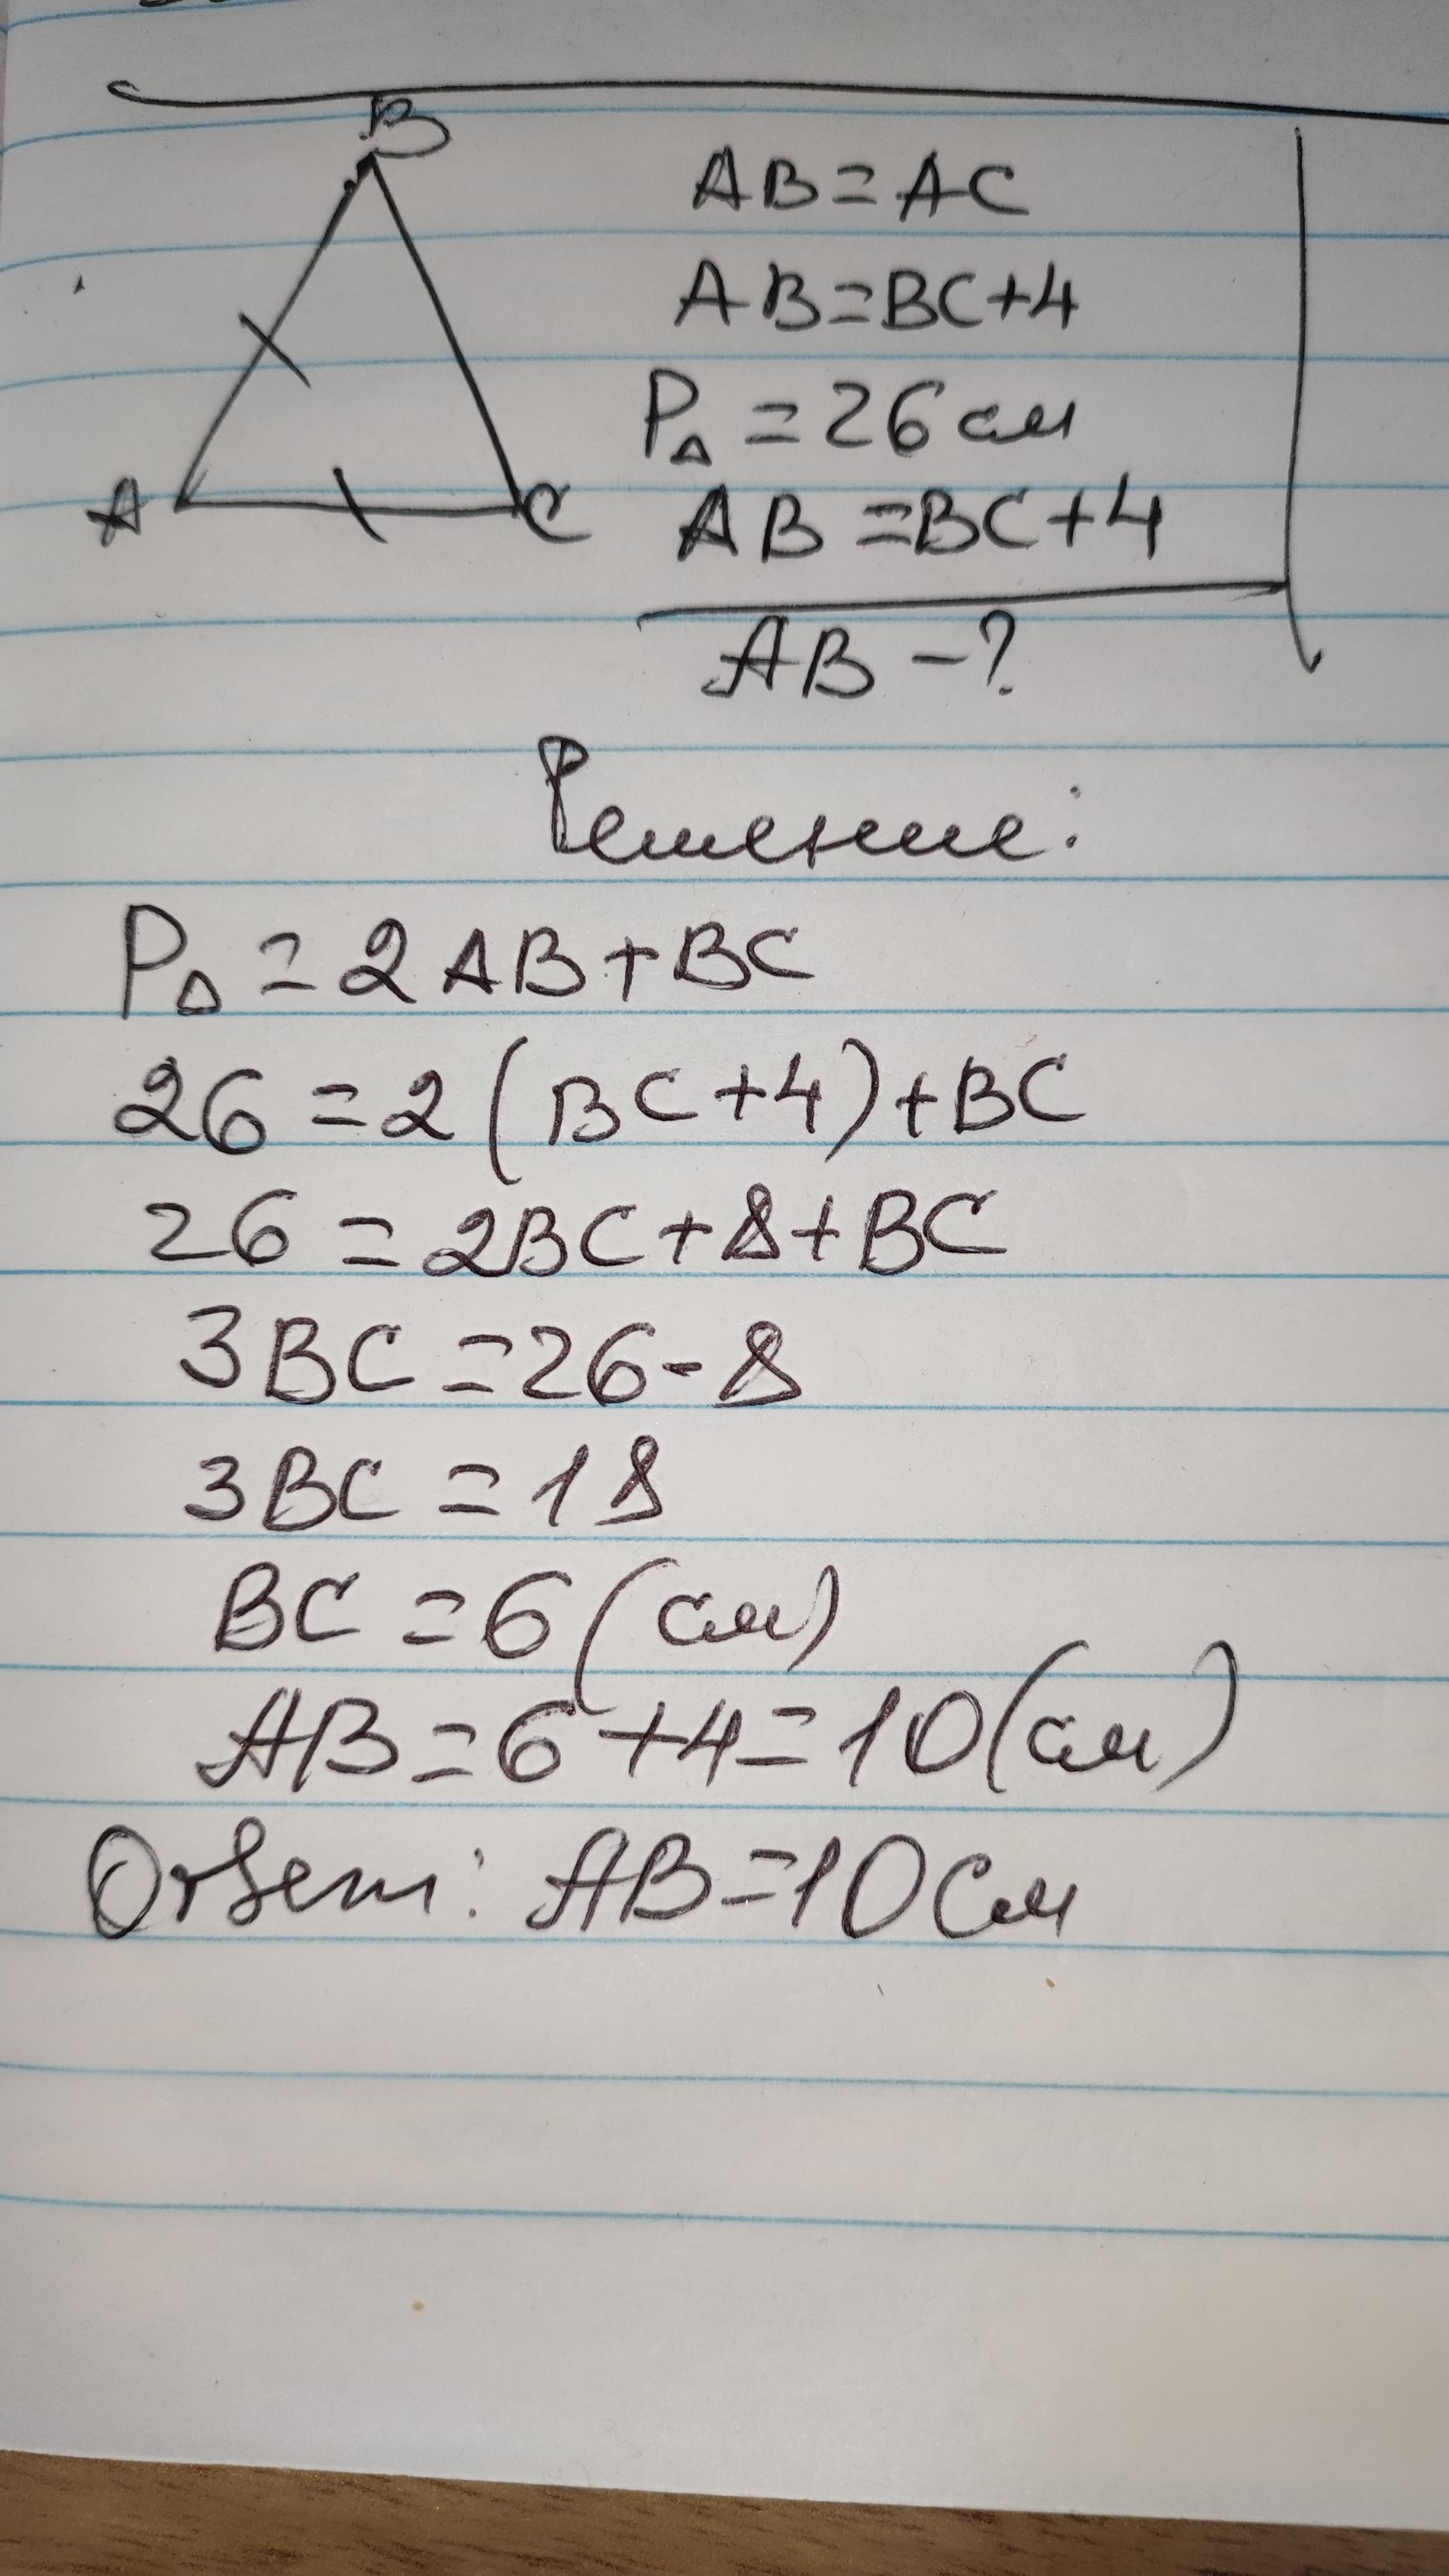 B
A
C
AB=AC
AB=BC+4
P△=26см
AB=BC+4
AB-?
Решение:
P△=2AB+BC
26=2(BC+4)+BC
26=2BC+8+BC
3BC=26-8
3BC=18
BC=6(см)
AB=6+4=10(см)
Ответ: AB=10см